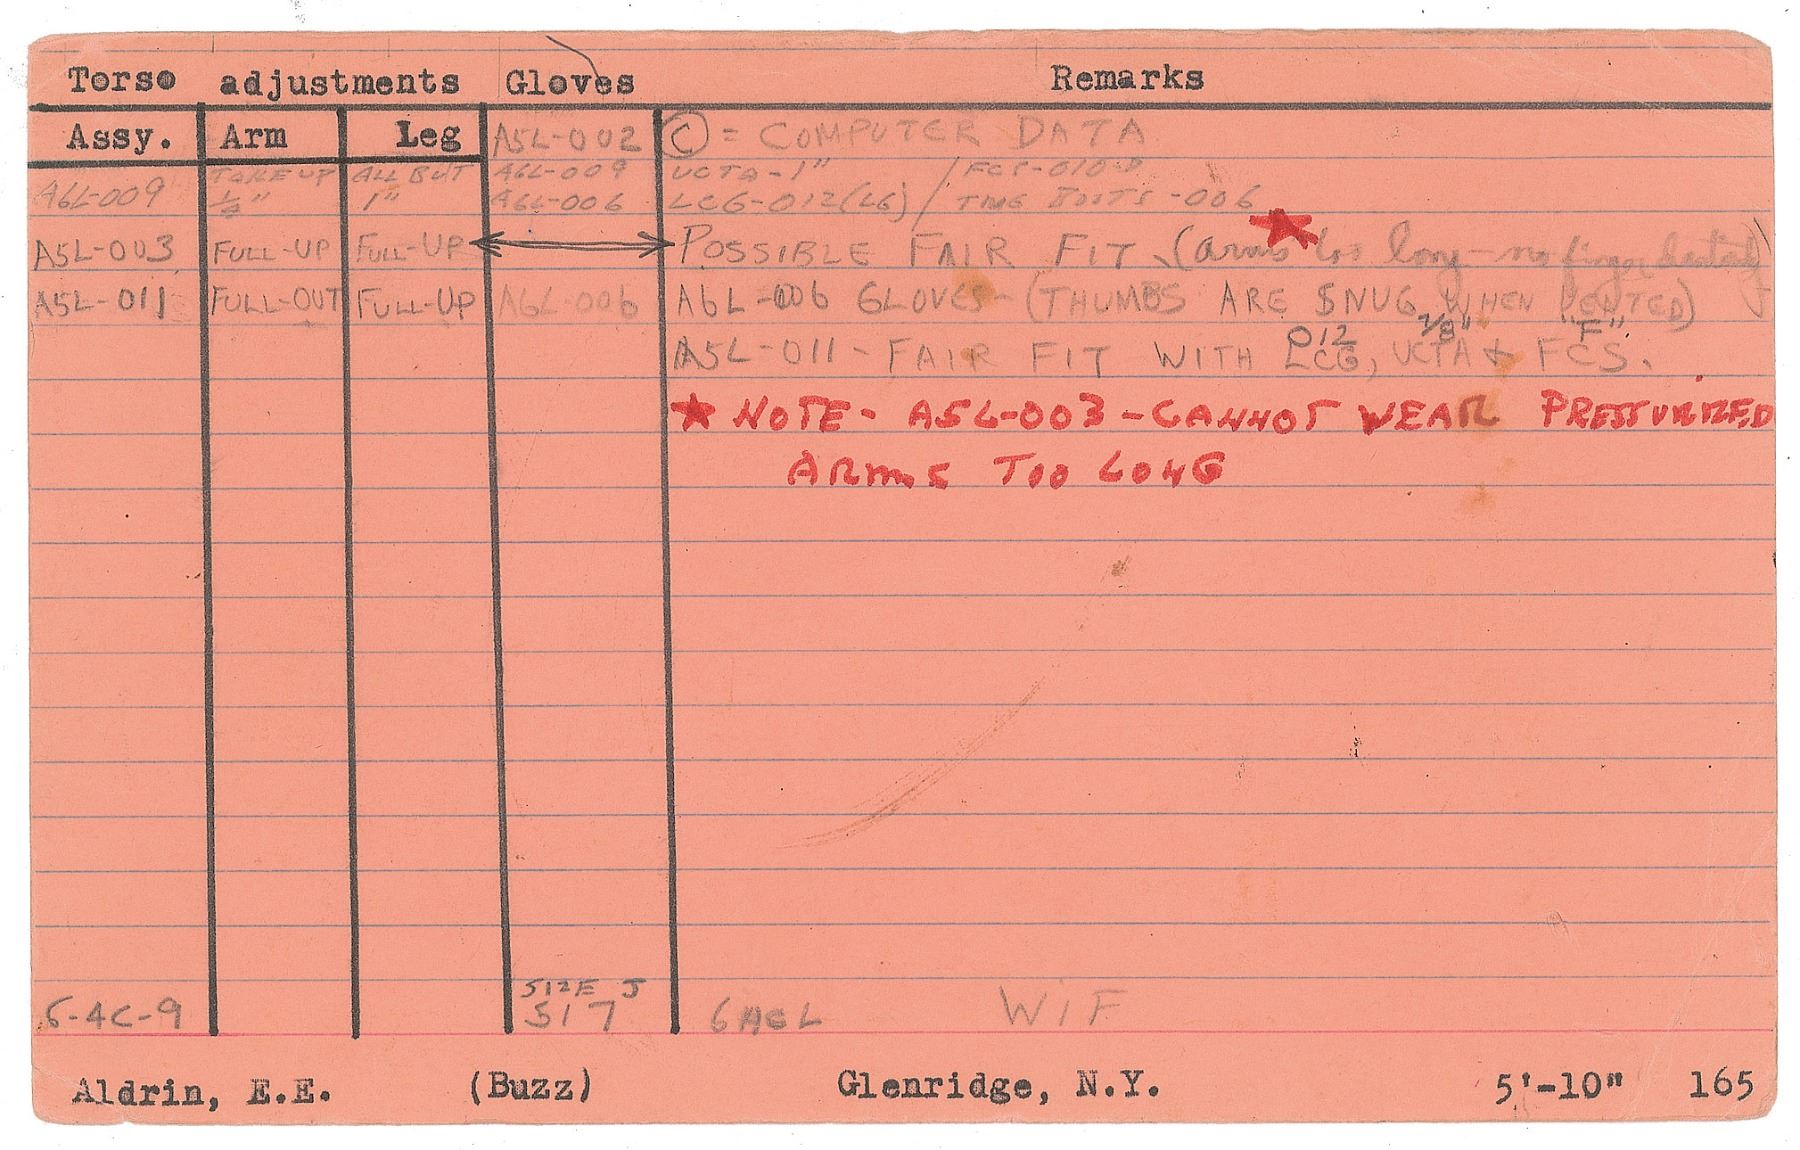 Torso adjustments Gloves Remarks
Assy. Arm Leg A5L-002 Ⓒ = COMPUTER DATA
TAKE UP ALL BUT A6L-009 UCTA-1" / FCS-010
A6L-009 1/2" 1" A6L-006 LCG-012(LG) / TMG BOOTS -006
A5L-003 FULL-UP FULL-UP POSSIBLE FAIR FIT (arms too long-no finger
A5L-011 FULL-OUT FULL-UP A6L-006 A6L-006 GLOVES-(THUMBS ARE SNUG WHEN VENTED)
012 7/8" "F"
A5L-011-FAIR FIT WITH LCG, UCTA + FCS.
★ NOTE- A5L-003-CANNOT WEAR PRESSURIZED
ARMS TOO LONG
SIZE J
6-4C-9 517 6HGL WIF
Aldrin, E.E. (Buzz) Glenridge, N.Y. 5'-10" 165